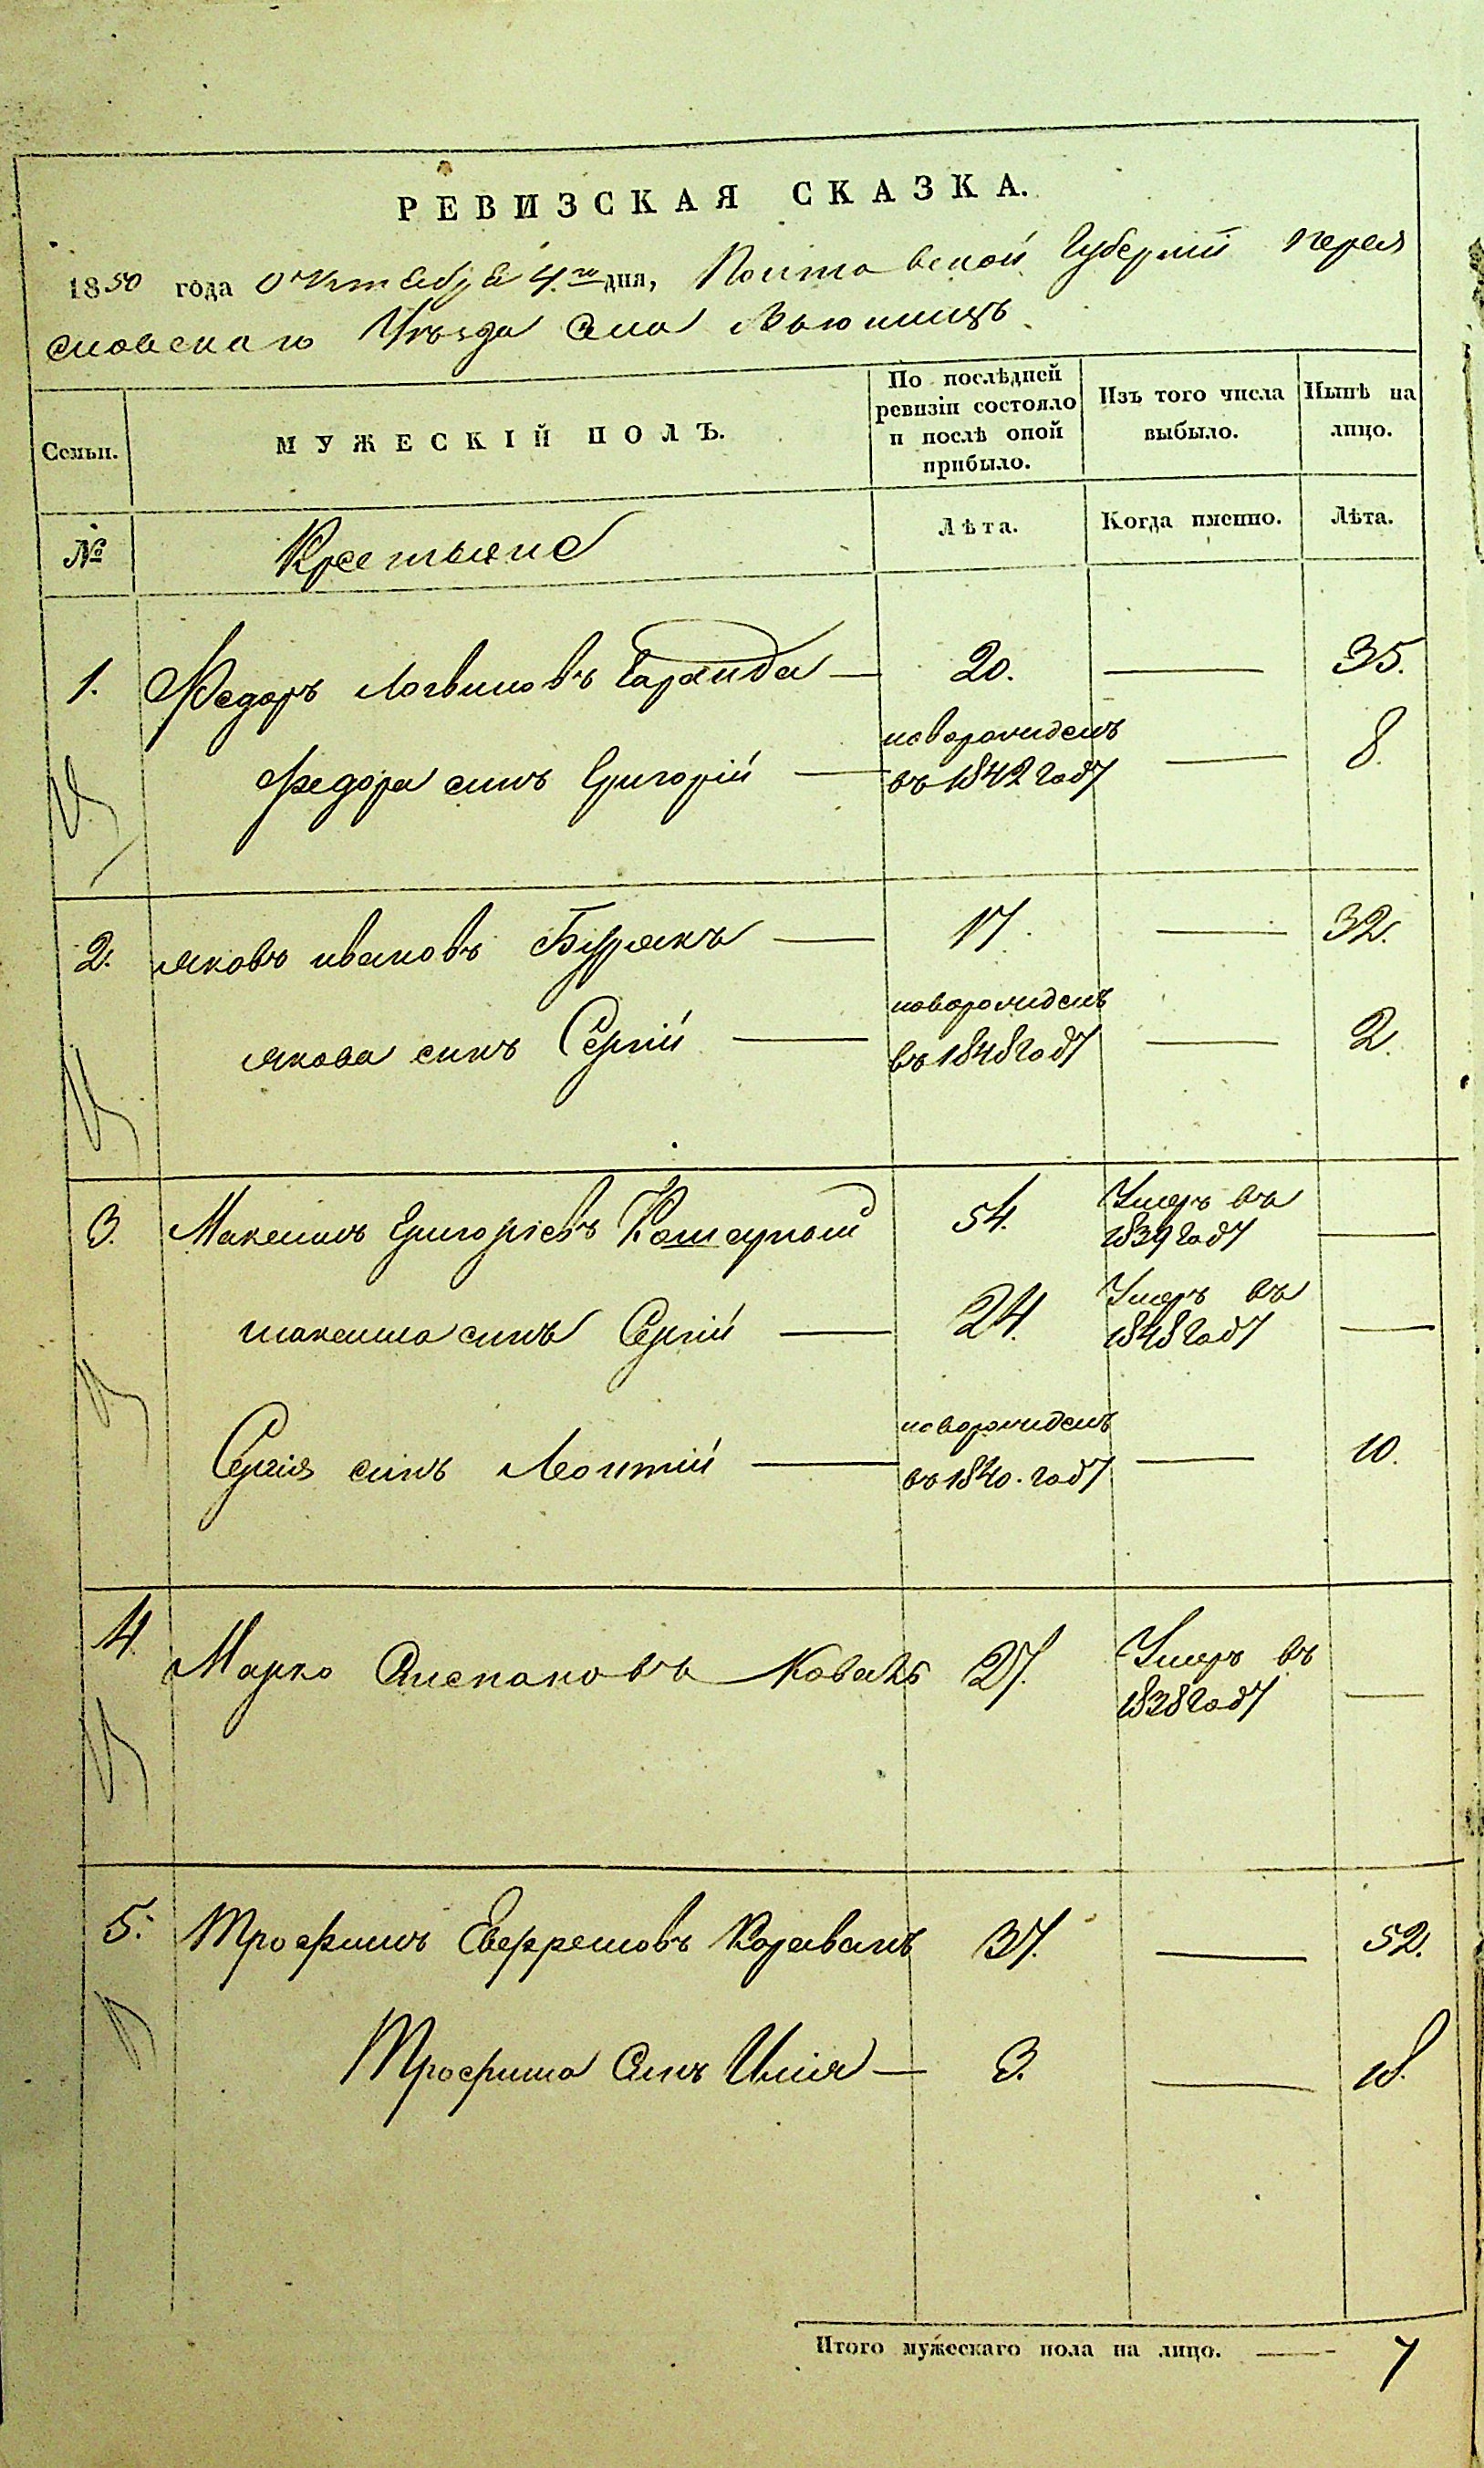 РЕВИЗСКАЯ СКАЗКА.
1850 года Октября 4.го дня, Полтавской Губернiи Перея
славскаго Уѣзда Села Вьюнищъ
Семьи.
МУЖЕСКІЙ ПОЛЪ.
По послѣдней ревизіи состояло и послѣ оной прибыло.
Изъ того числа выбыло.
Нынѣ на лицо.
№
Крестьяне
Лѣта.
Когда именно.
Лѣта.
1. Федоръ Логвиновъ — 20. — 35.
Федора синъ Григорій — новорожденъ въ 1842 году — 8.
2. яковъ ивановъ Бурякъ — 17. — 32.
якова синъ Сергій — новорожденъ въ 1848 году — 2.
3. Максимъ Григоріевъ 54. Умеръ въ 1839 году —
максима синъ Сергій — 24. Умеръ въ 1848 году —
Сергія синъ Леонтій — новорожденъ въ 1840. году — 10.
4. Марко Степановъ Коваль 27. Умеръ въ 1838 году —
5. Трофимъ Евфремовъ Караванъ 37. — 52.
Трофима Синъ Илія — 3. — 18.
Итого мужескаго пола на лицо. — 7